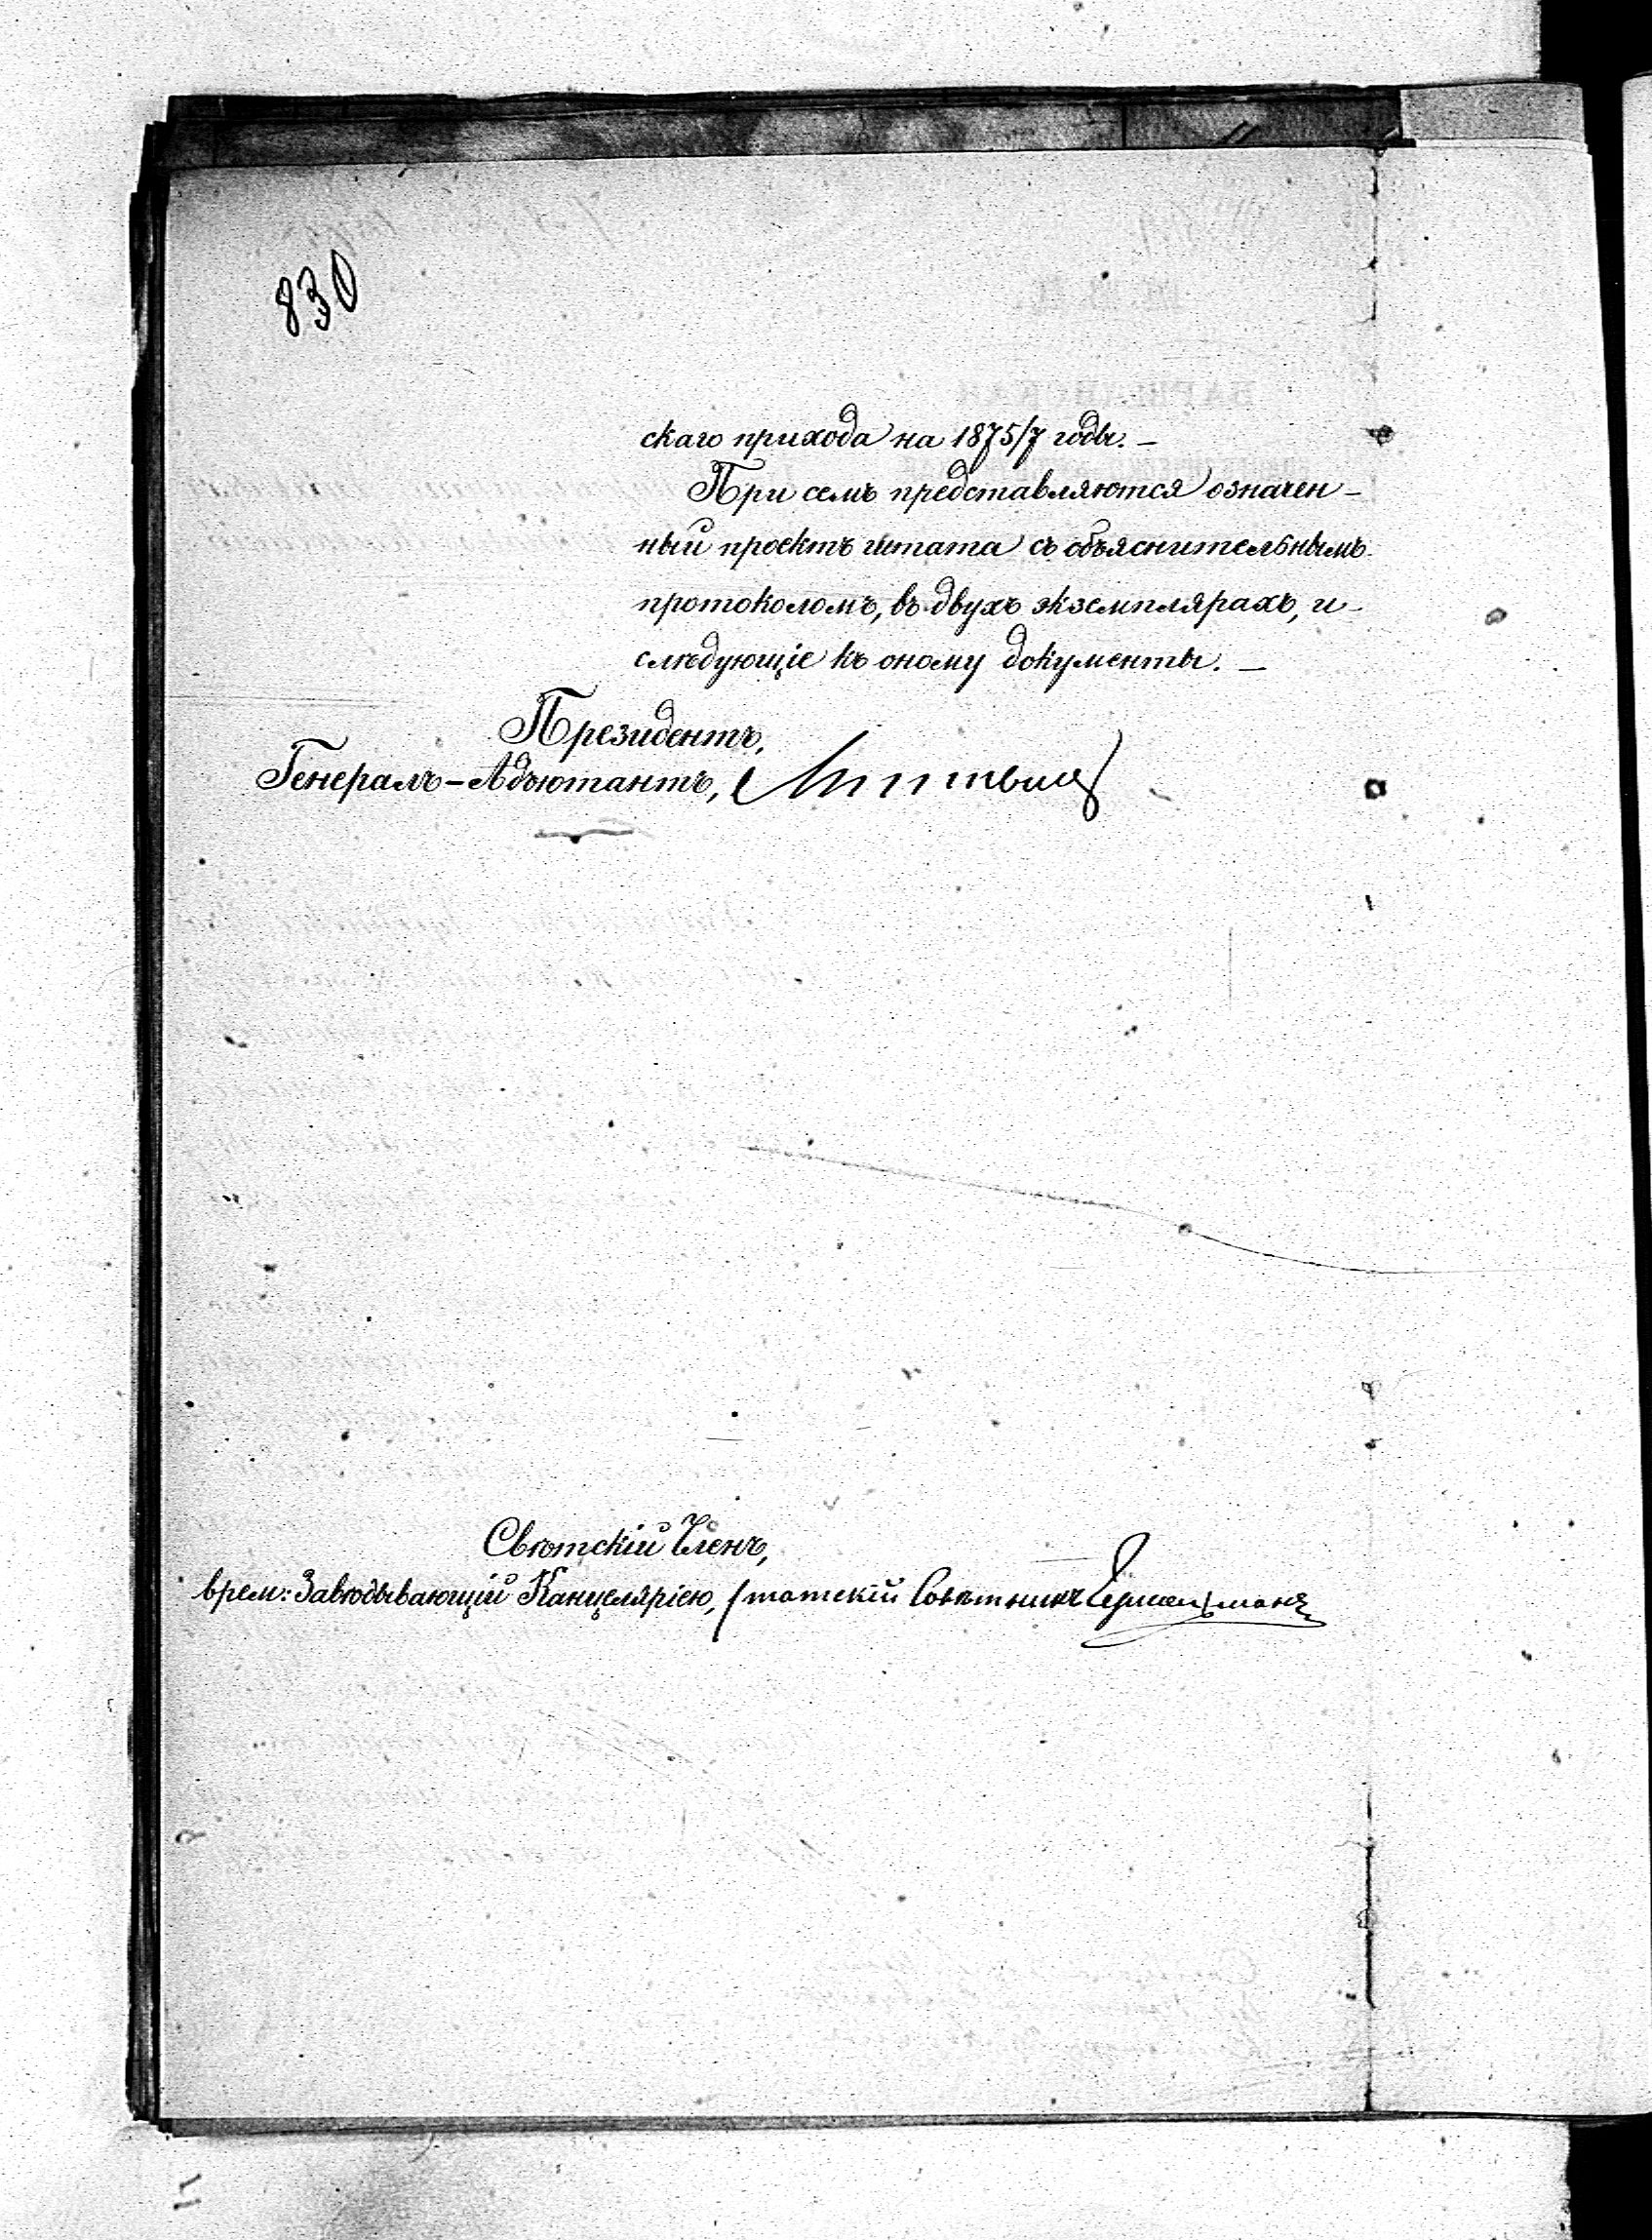 830
скаго прихода на 1875/7 годы. —
При семъ представляются означен-
ный проектъ штата съ объяснительнымъ
протоколомъ, въ двухъ экземплярахъ, и
слѣдующіе къ оному документы. —
Президентъ,
Генералъ-Адъютантъ,
Свѣтскій Членъ,
врем: Завѣдывающій Канцеляріею, Статскій Совѣтникъ